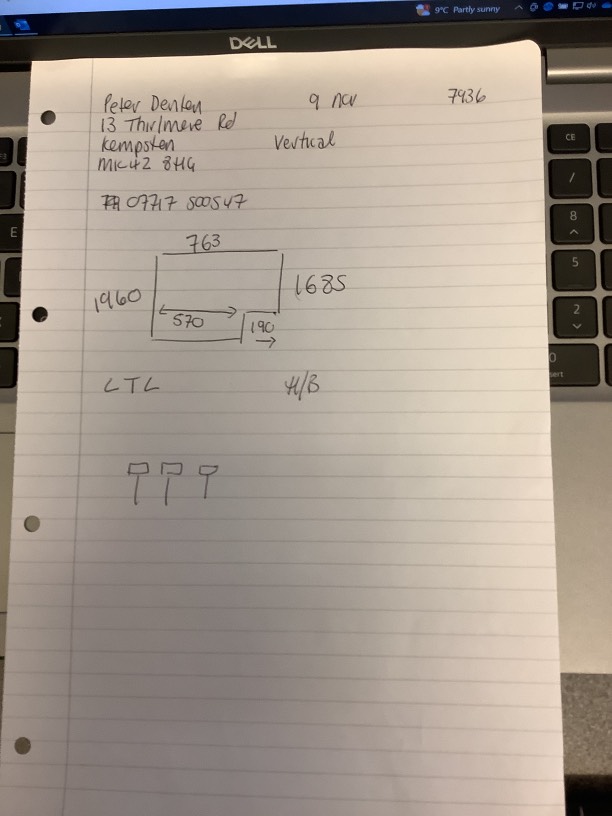 9°C Partly sunny
DELL
Peter Denton 9 nov 7936
13 Thirlmere Rd
Kempston Vertical
MK42 8HG
07717 500547
763
1960 1685
570 190
LTL H/B
CE
/
8
5
2
0
E